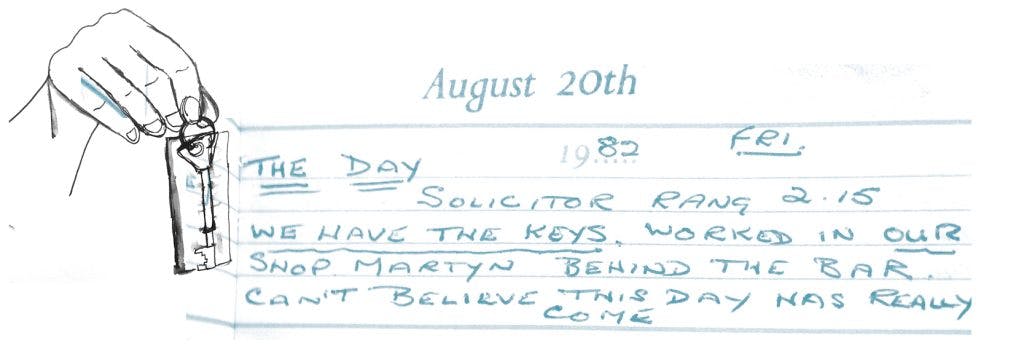 August 20th
1982 FRI.
THE DAY
SOLICITOR RANG 2.15
WE HAVE THE KEYS. WORKED IN OUR
SHOP MARTYN BEHIND THE BAR.
CAN'T BELIEVE THIS DAY HAS REALLY
COME